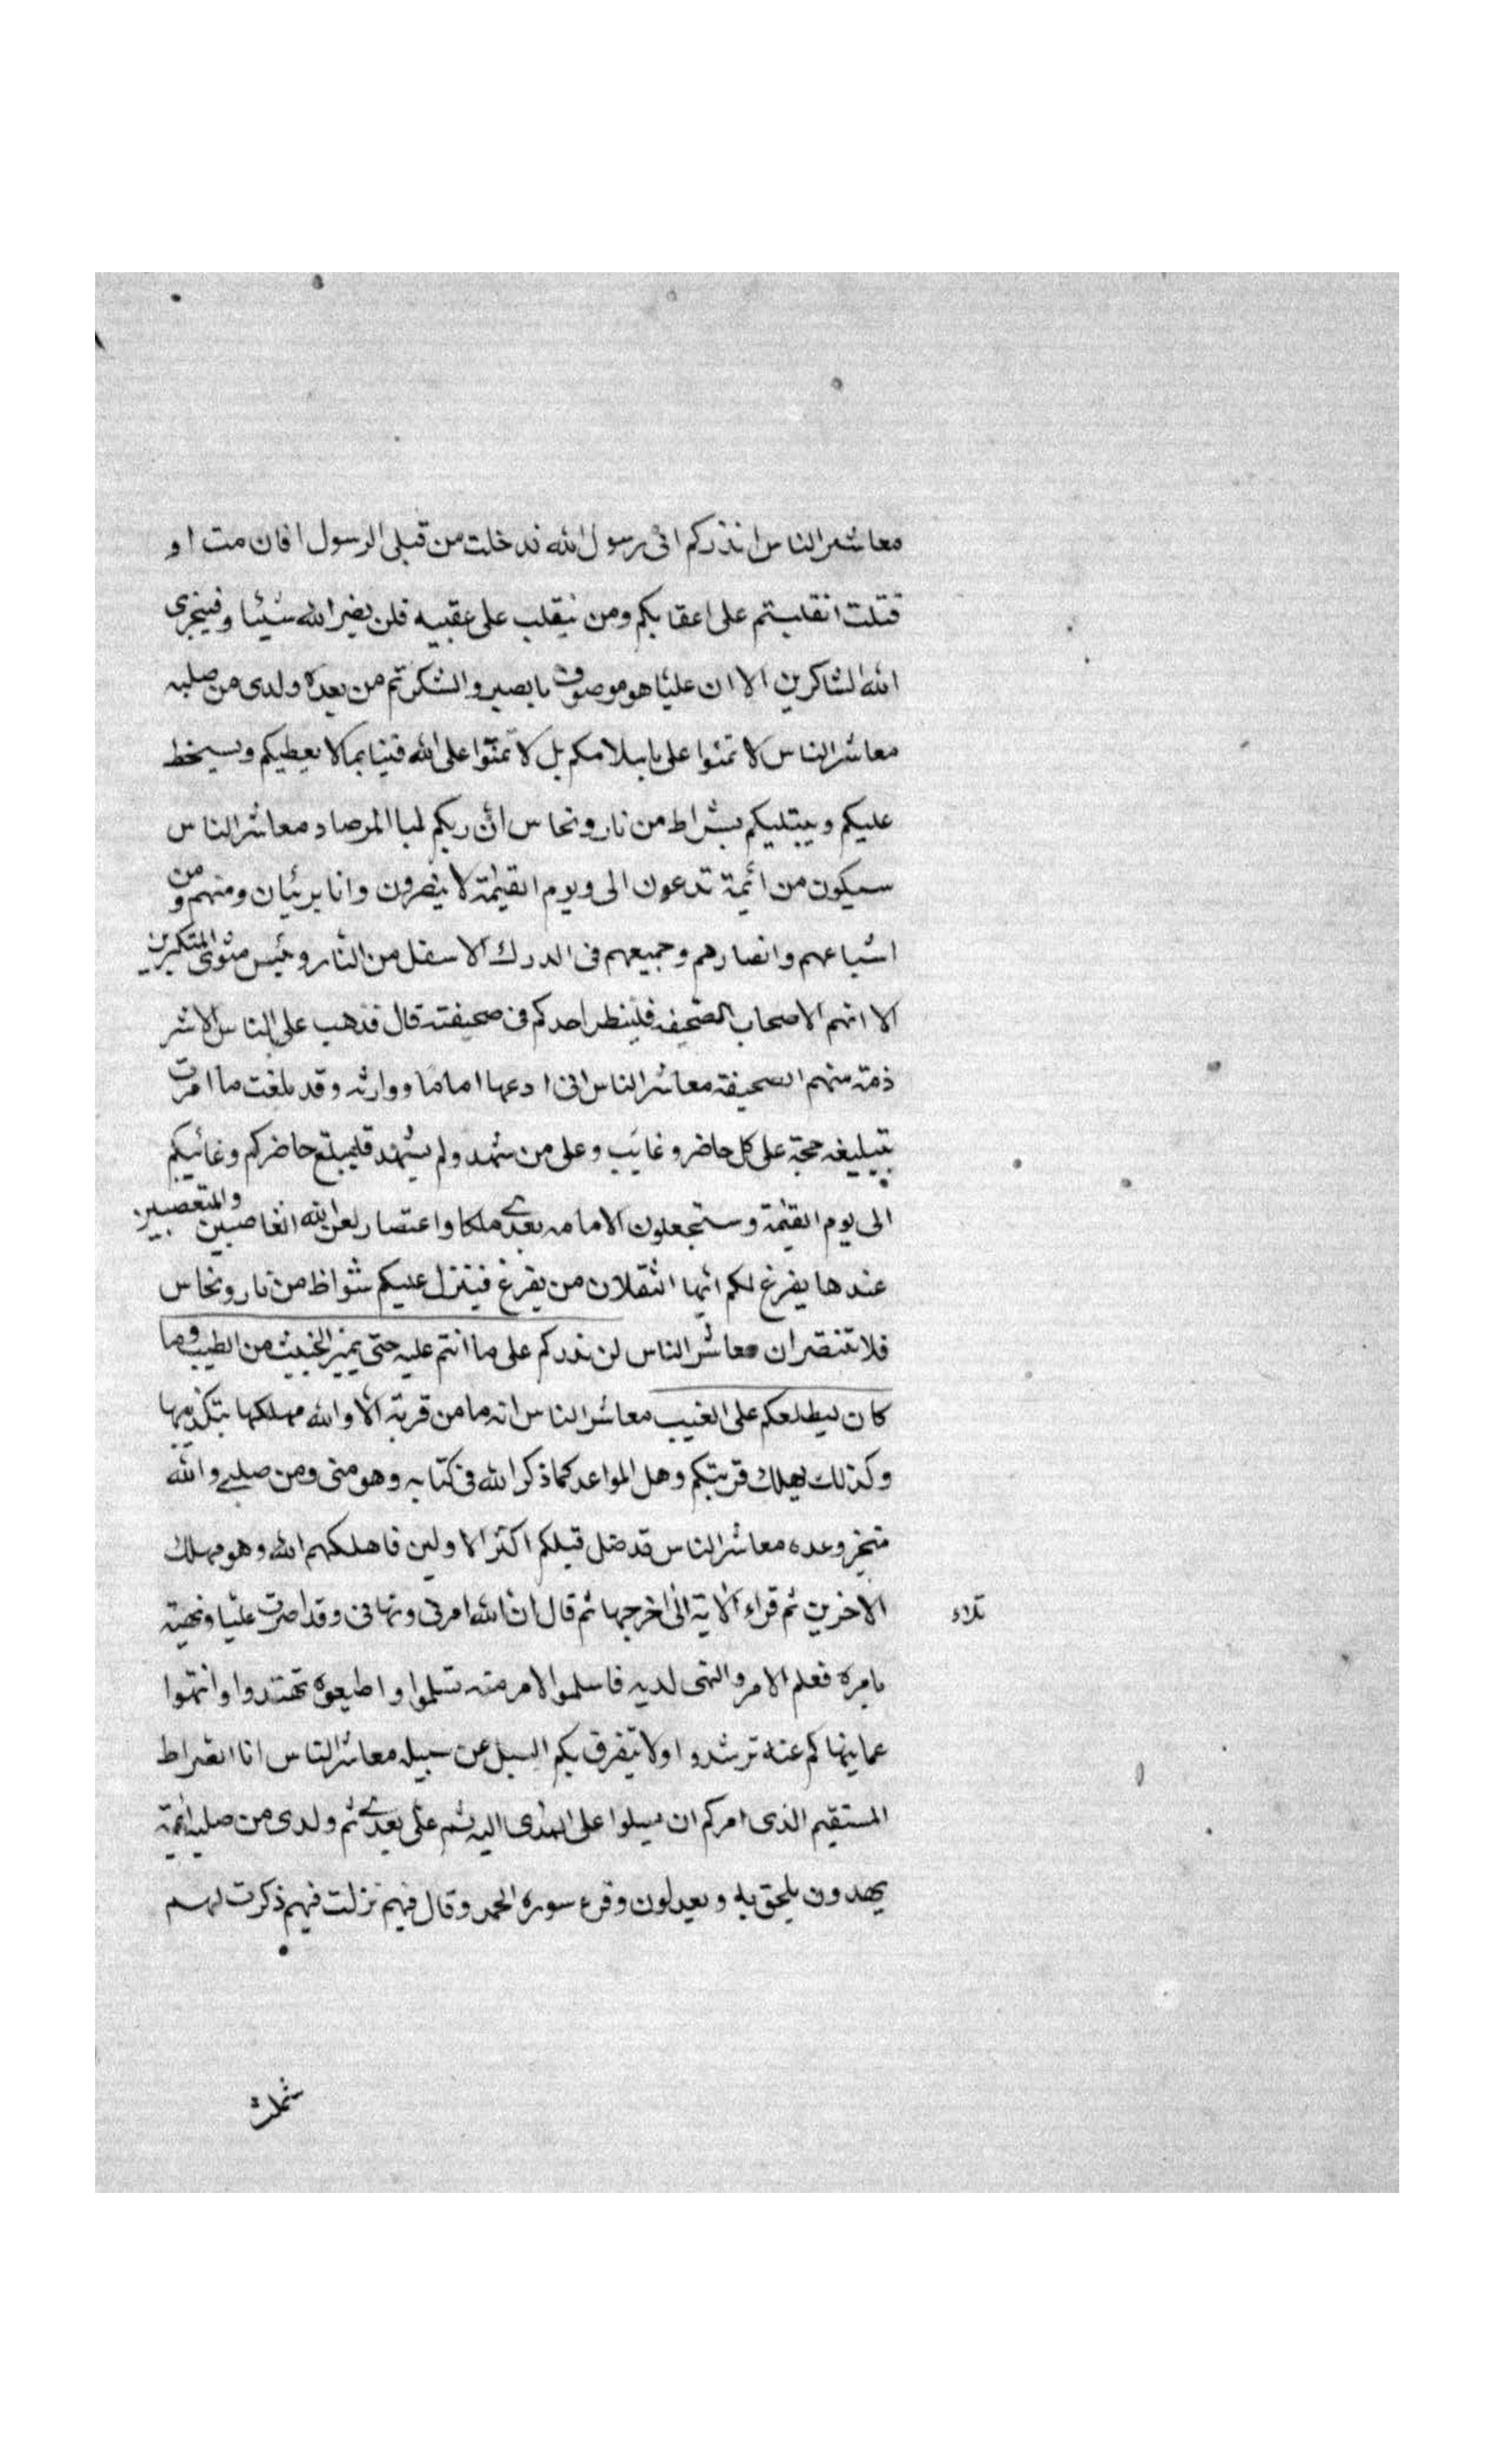 معاشر الناس انذركم انى رسول الله قد خلت من قبلى الرسول افان مت او
قتلت انقلبتم على اعقابكم ومن ينقلب على عقبيه فلن يضر الله شيئا وفيجزى
الله الشاكرين الا ان عليا هو موصوف بابصير والشكر ثم من بعده ولدى من صلبه
معاشر الناس لا تمنوا على باسلامكم بل لا تمنوا على الله فينا بما لا يعطيكم ويسخط
عليكم ويبتليكم بشراط من نار ونحاس ان ربكم لبا المرصاد معاشر الناس
سيكون من ائمة تدعون الى ويوم القيمة لا ينصرون وانا بريئان ومنهم ومن
اشباعهم وانصارهم وجميعهم فى الدرك الاسفل من النار وبئس مثوى المتكبرين
الا انهم الاصحاب الصحيفه فلينظر احدكم فى صحيفته قال فذهب على الناس الاشر
ذمة منهم الصحيفة معاشر الناس انى ادعها اماما ووارثه وقد بلغت ما امرت
بتبليغه حجة على كل حاضر وغايب وعلى من شهد ولم يشهد فليبلغ حاضركم وغائبكم
الى يوم القيمة وستجعلون الامامه بعدى ملكا واعتصار لعن الله الغاصبين والمتعصبين
عندها يفرغ لكم ايها الثقلان من يفرغ فينزل عليكم شواظ من نار ونحاس
فلا تنتصران معاشر الناس لن نذركم على ما انتم عليه حتى يميز الخبيث من الطيب وما
كان ليطلعكم على الغيب معاشر الناس انه ما من قرية الا والله مهلكها بتكذيبها
وكذلك يهلك قريتكم وهل المواعد كما ذكر الله فى كتابه وهو منى ومن صلبى والله
منجز وعده معاشر الناس قد ضل قبلكم اكثر الاولين فاهلكهم الله وهو مهلك
الاخرين ثم قراء الاية الى اخرجها ثم قال ان الله امرنى ونهانى وقد امرت عليا ونهيته
بامره فعلم الامر والنهى لديه فاسلموا لامر منه تسلموا واطيعوه تهتدوا وانتهوا
عما ينهاكم عنه ترشدوا ولا يتفرق بكم السبل عن سبيله معاشر الناس انا الصراط
المستقيم الذى امركم ان يسلوا على الهدى اليه ثم على بعدى ثم ولدى من صلبه ائمة
يهدون بلحق به ويعدلون وقرء سوره الحمد وقال فيهم نزلت فيهم ذكرت لهم